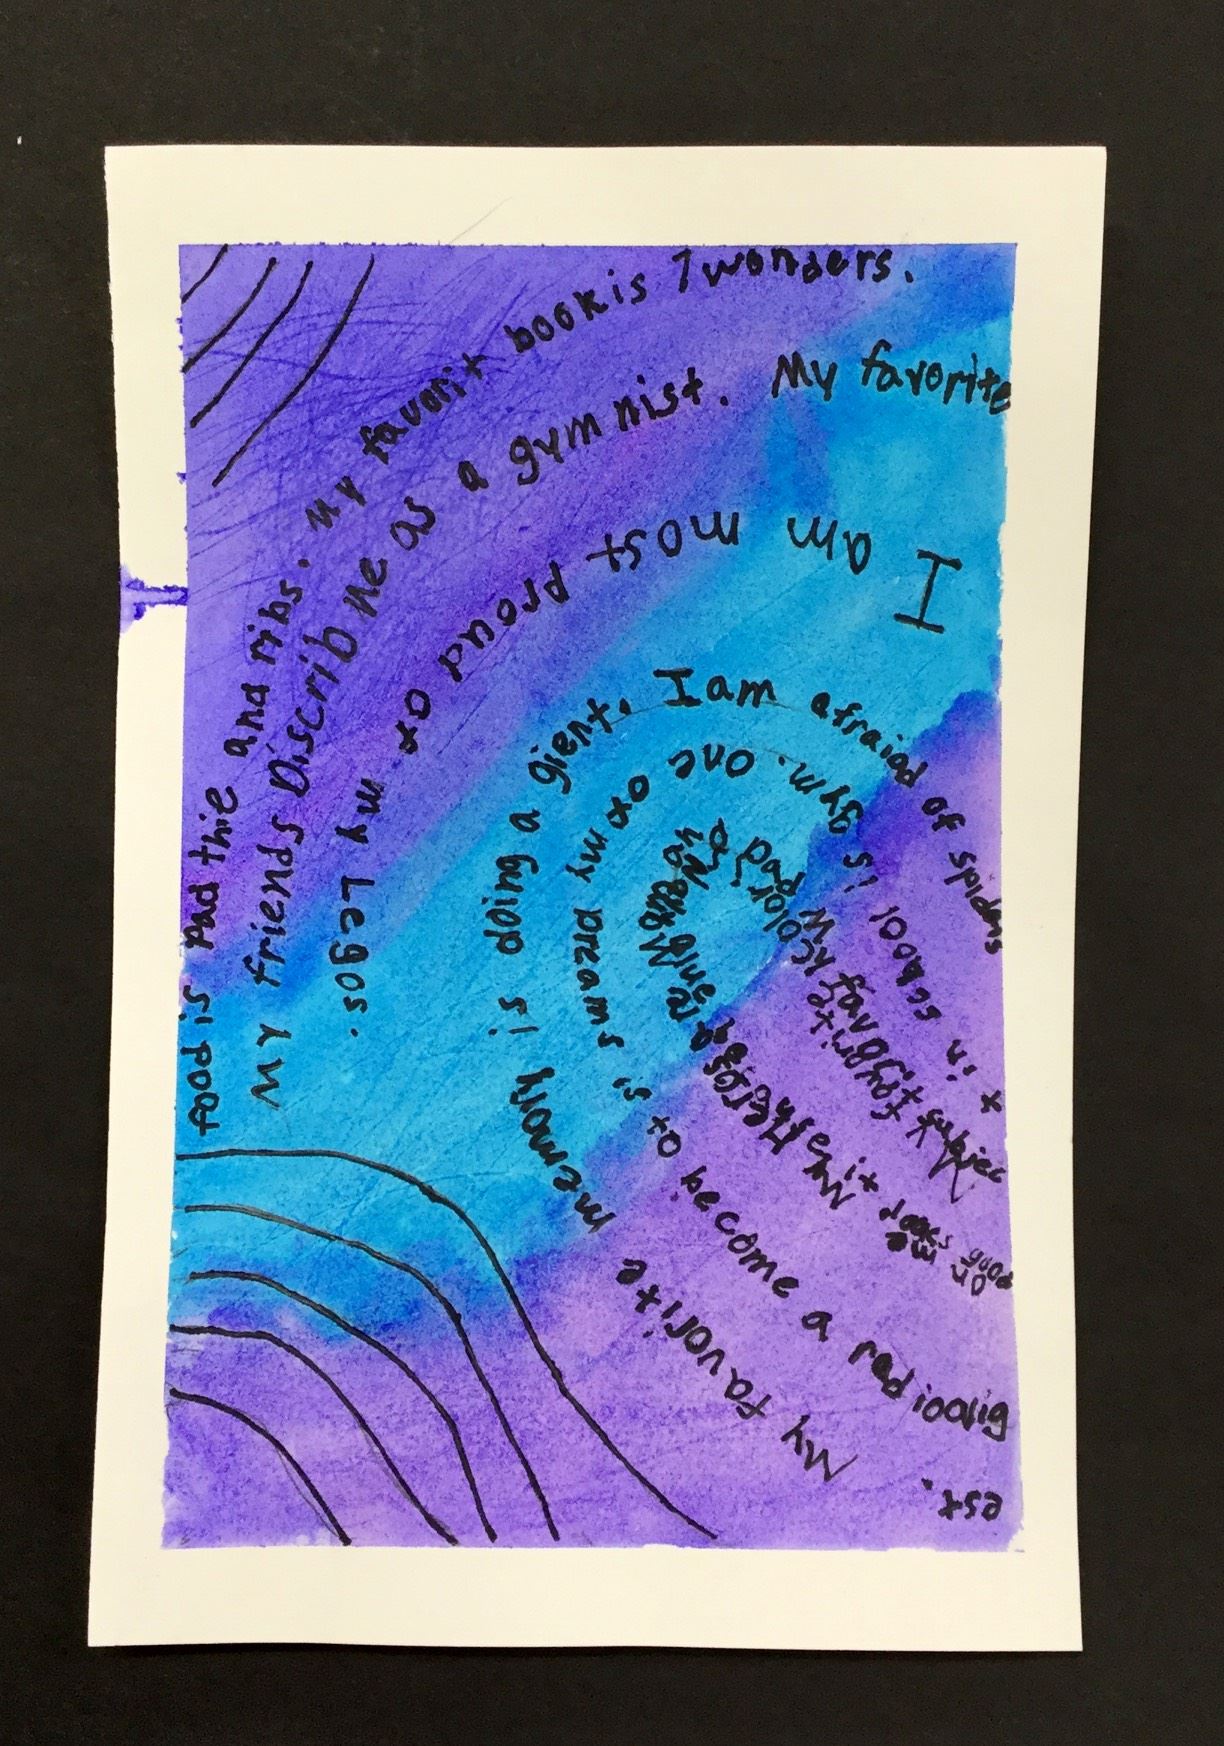 My friends Discrib me as a gymnist. My favorite
food is Pad thie and ribs. My favorit book is 7 wonders.
I am most proud of my Legos.
My favorite memory is doing a gient. I am afraiad of spiders
one of my dreams is to become a radioolig
est.
My favorite subjec
t in school is gym.
My Heros
My favorit color
it looks good
on me